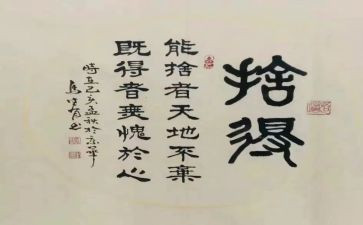 捨得
能捨者天地不棄
既得者無愧於心
時在己亥孟秋於京華